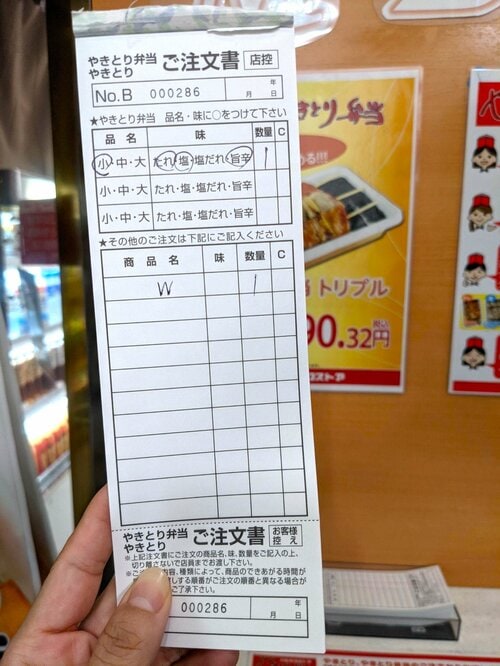 やきとり弁当
やきとり ご注文書 店控
No.B 000286 年 月 日
★やきとり弁当 品名・味に○をつけて下さい
品名 味 数量 C
小・中・大 たれ・塩・塩だれ・旨辛 1
小・中・大 たれ・塩・塩だれ・旨辛
小・中・大 たれ・塩・塩だれ・旨辛
★その他のご注文は下記にご記入ください
商品名 味 数量 C
W 1
やきとり弁当
やきとり ご注文書 お客様控え
※上記注文書にご注文の商品名、味、数量をご記入の上、
切り離さないで店員までお渡し下さい。
内容、種類によって、商品のできあがる時間が
する順番がご注文の順番と異なる場合が
ご了承下さい。
000286 年 月 日
とり弁当
トリプル
90.32円
税込